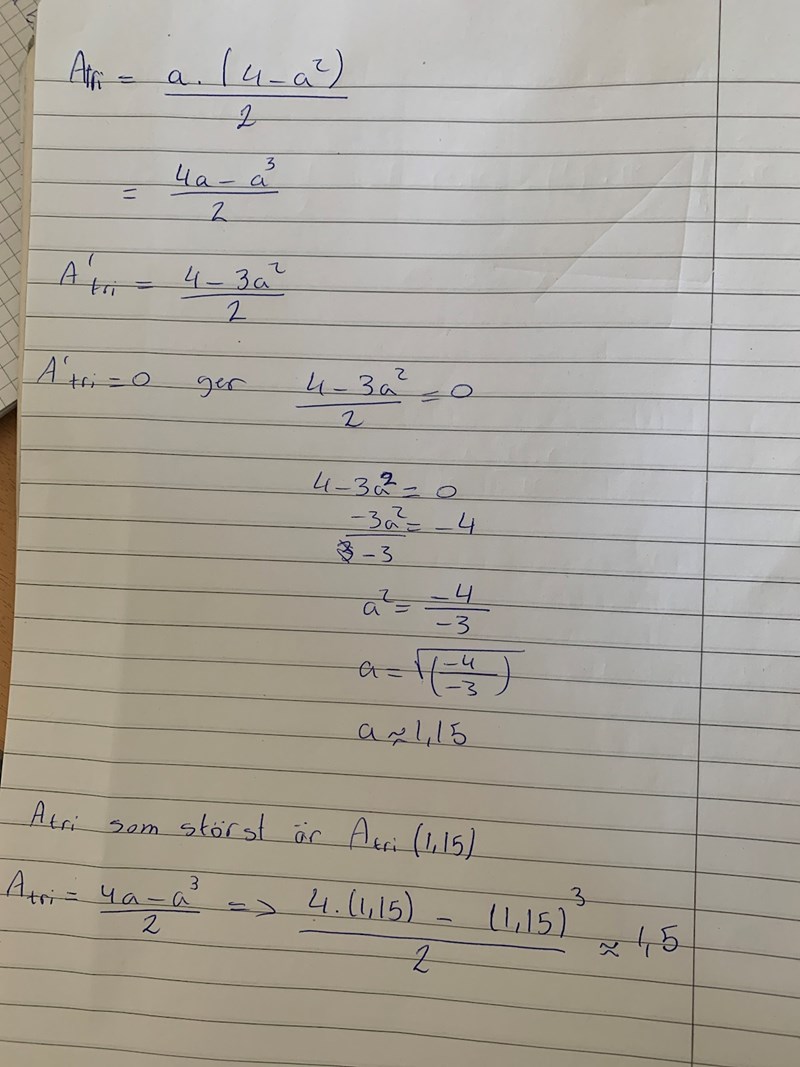 Atri = a · (4 - a²) / 2
= 4a - a³ / 2
A'tri = 4 - 3a² / 2
A'tri = 0 ger 4 - 3a² / 2 = 0
4 - 3a² = 0
-3a² / -3 = -4
a² = -4 / -3
a = √(-4 / -3)
a ≈ 1,15
Atri som störst är Atri (1,15)
Atri = 4a - a³ / 2 => 4 · (1,15) - (1,15)³ / 2 ≈ 1,5